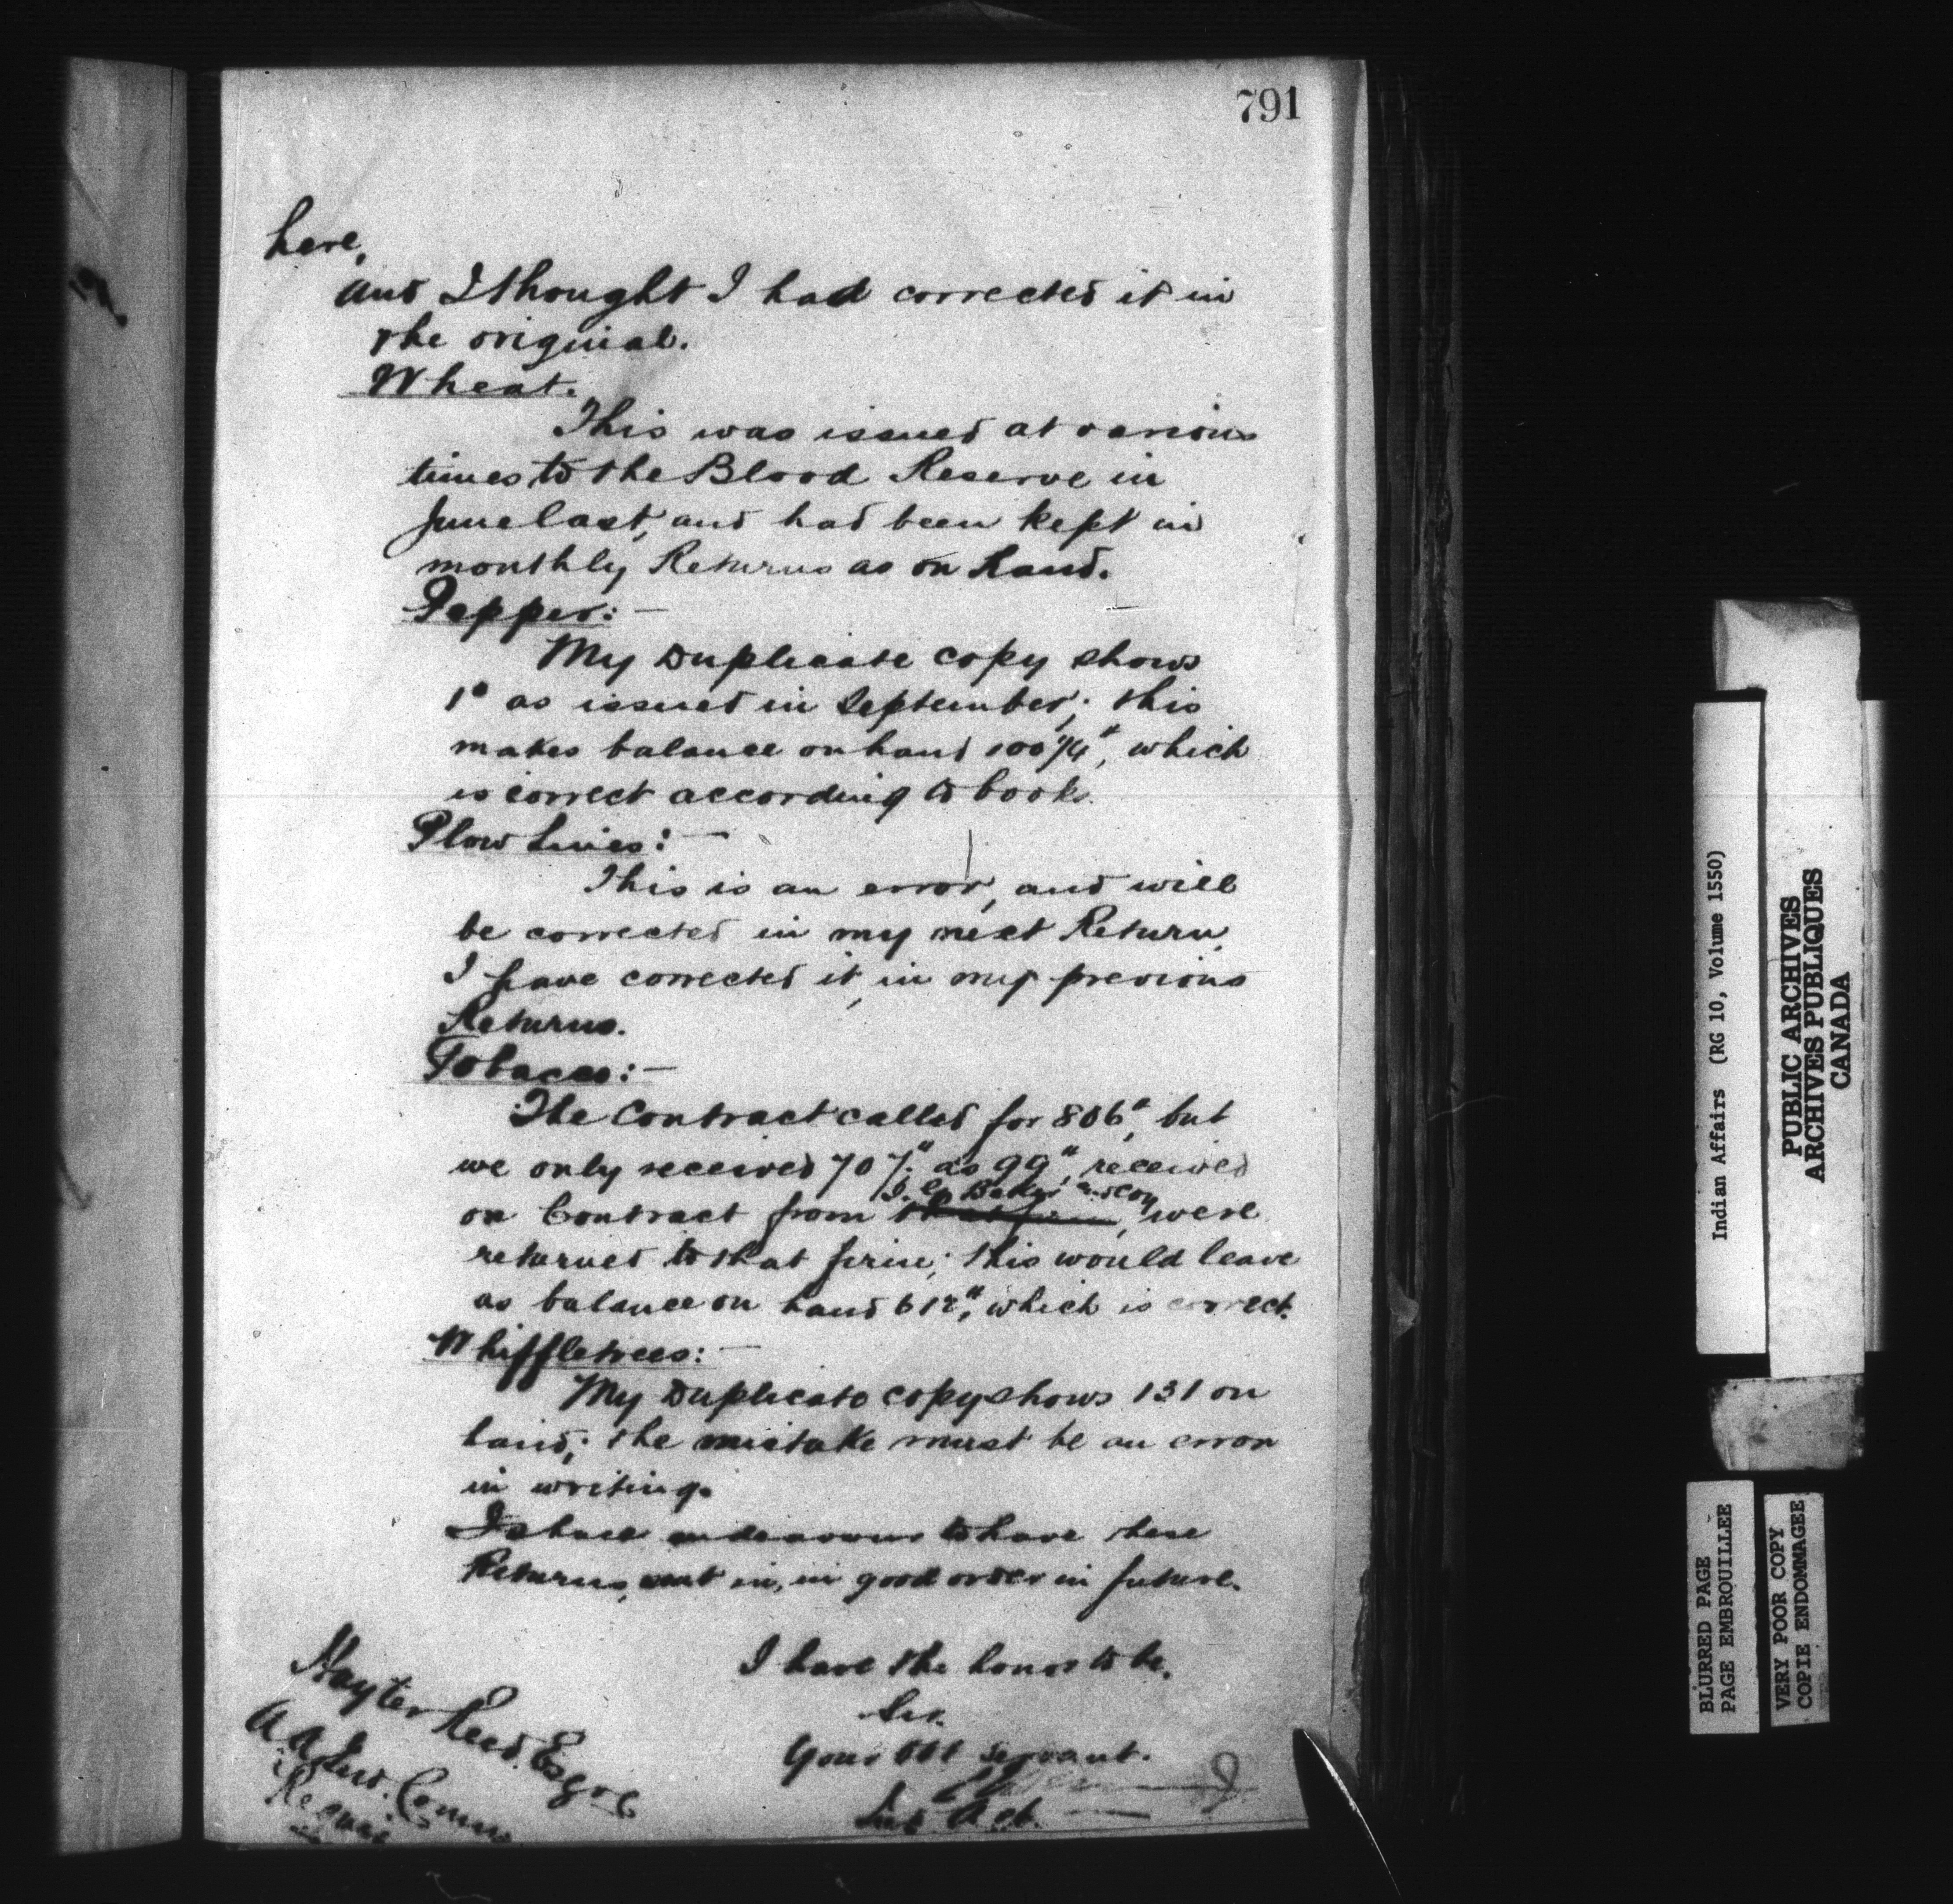 791
here,
and I thought I had corrected it in
the original.
Wheat.
This was issued at various
times to the Blood Reserve in
June last, and had been kept in
monthly Returns as on hand.
Pepper:—
My Duplicate copy shows
1# as issued in September; this
makes balance on hand 100 1/4#, which
is correct according to book.
Plow Lines:—
This is an error, and will
be corrected in my next Return.
I have corrected it, in my previous
Returns.
Tobacco:—
The Contract called for 806#, but
we only received 707#: as 99#, received
I. G. Baker and Coy
on Contract from that firm, were
returned to that firm; this would leave
as balance on hand 612#, which is correct.
Whiffletrees:—
My Duplicate copy shows 131 on
hand; the mistake must be an error
in writing.
I shall endeavour to have these
Returns, sent in, in good order in future.
I have the honor to be,
Sir.
Your Obt servant.
Ind. Agt.
Hayter Reed. Esqre
A. Ind. Comm
Regina
Indian Affairs (RG 10, Volume 1550)
PUBLIC ARCHIVES
ARCHIVES PUBLIQUES
CANADA
BLURRED PAGE
PAGE EMBROUILLEE
VERY POOR COPY
COPIE ENDOMMAGEE